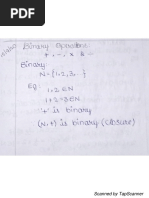 Binary Operations
+, -, ×, &, ÷
Binary:
N = {1, 2, 3, }
Eg:
1, 2 ∈ N
1+2=3 ∈ N
'+' is binary
(N, +) is binary (closure)
Scanned by TapScanner